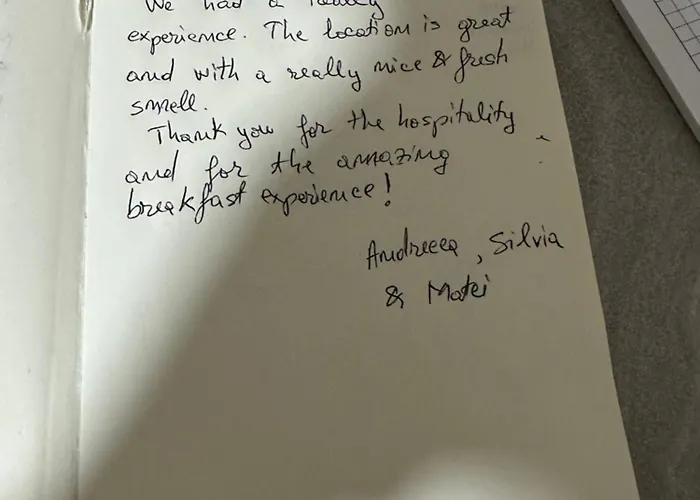 We had a
experience. The location is great
and with a really nice & fresh
smell.
Thank you for the hospitality
and for the amazing
breakfast experience!
Andreea, Silvia
& Matei